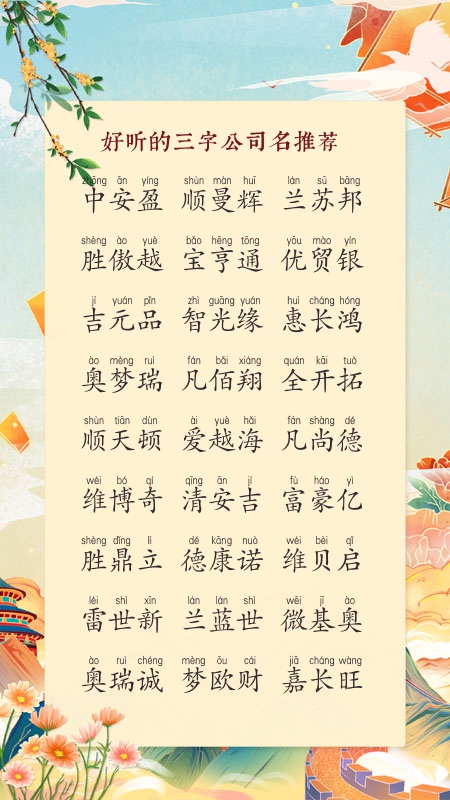 好听的三字公司名推荐
zhōng ān yíng shùn màn huī lán sū bāng
中安盈 顺曼辉 兰苏邦
shèng ào yuè bǎo hēng tōng yōu mào yín
胜傲越 宝亨通 优贸银
jí yuán pǐn zhì guāng yuán huì cháng hóng
吉元品 智光缘 惠长鸿
ào mèng ruì fán bǎi xiáng quán kāi tuò
奥梦瑞 凡佰翔 全开拓
shùn tiān dùn ài yuè hǎi fán shàng dé
顺天顿 爱越海 凡尚德
wéi bó qí qīng ān jí fù háo yì
维博奇 清安吉 富豪亿
shèng dǐng lì dé kāng nuò wéi bèi qǐ
胜鼎立 德康诺 维贝启
léi shì xīn lán lán shì wēi jī ào
雷世新 兰蓝世 微基奥
ào ruì chéng mèng ōu cái jiā cháng wàng
奥瑞诚 梦欧财 嘉长旺